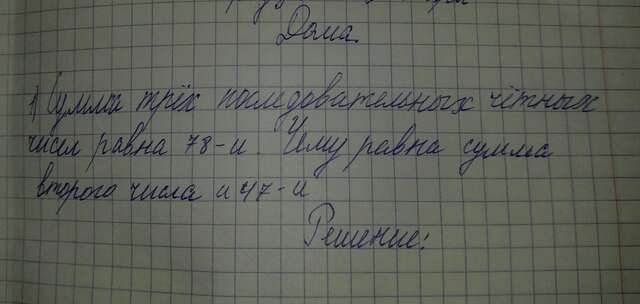 Дома.
1) Сумма трёх последовательных чётных
чисел равна 78-и. Чему равна сумма
второго числа и 47-и
Решение: